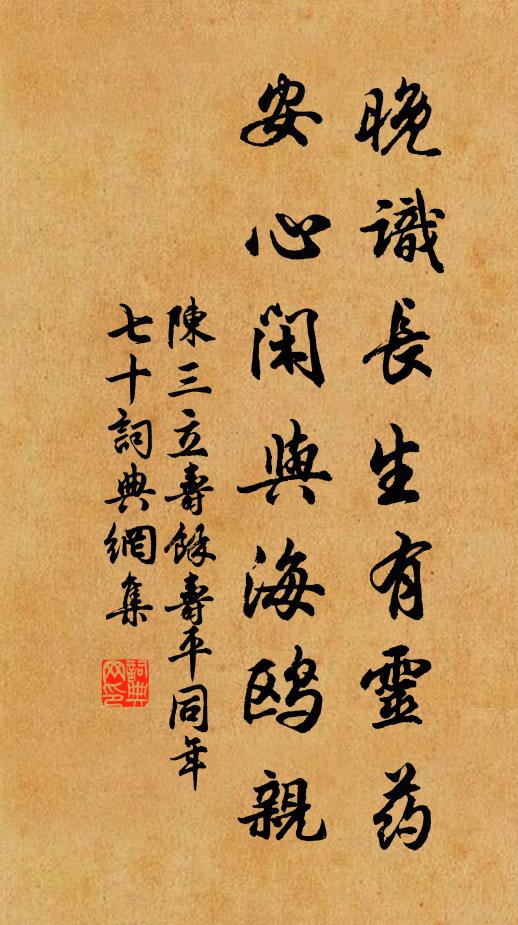 晚識長生有靈药
安心閑與海鸥親
陳三立壽餘壽平同年
七十詞典網集
詞典網印